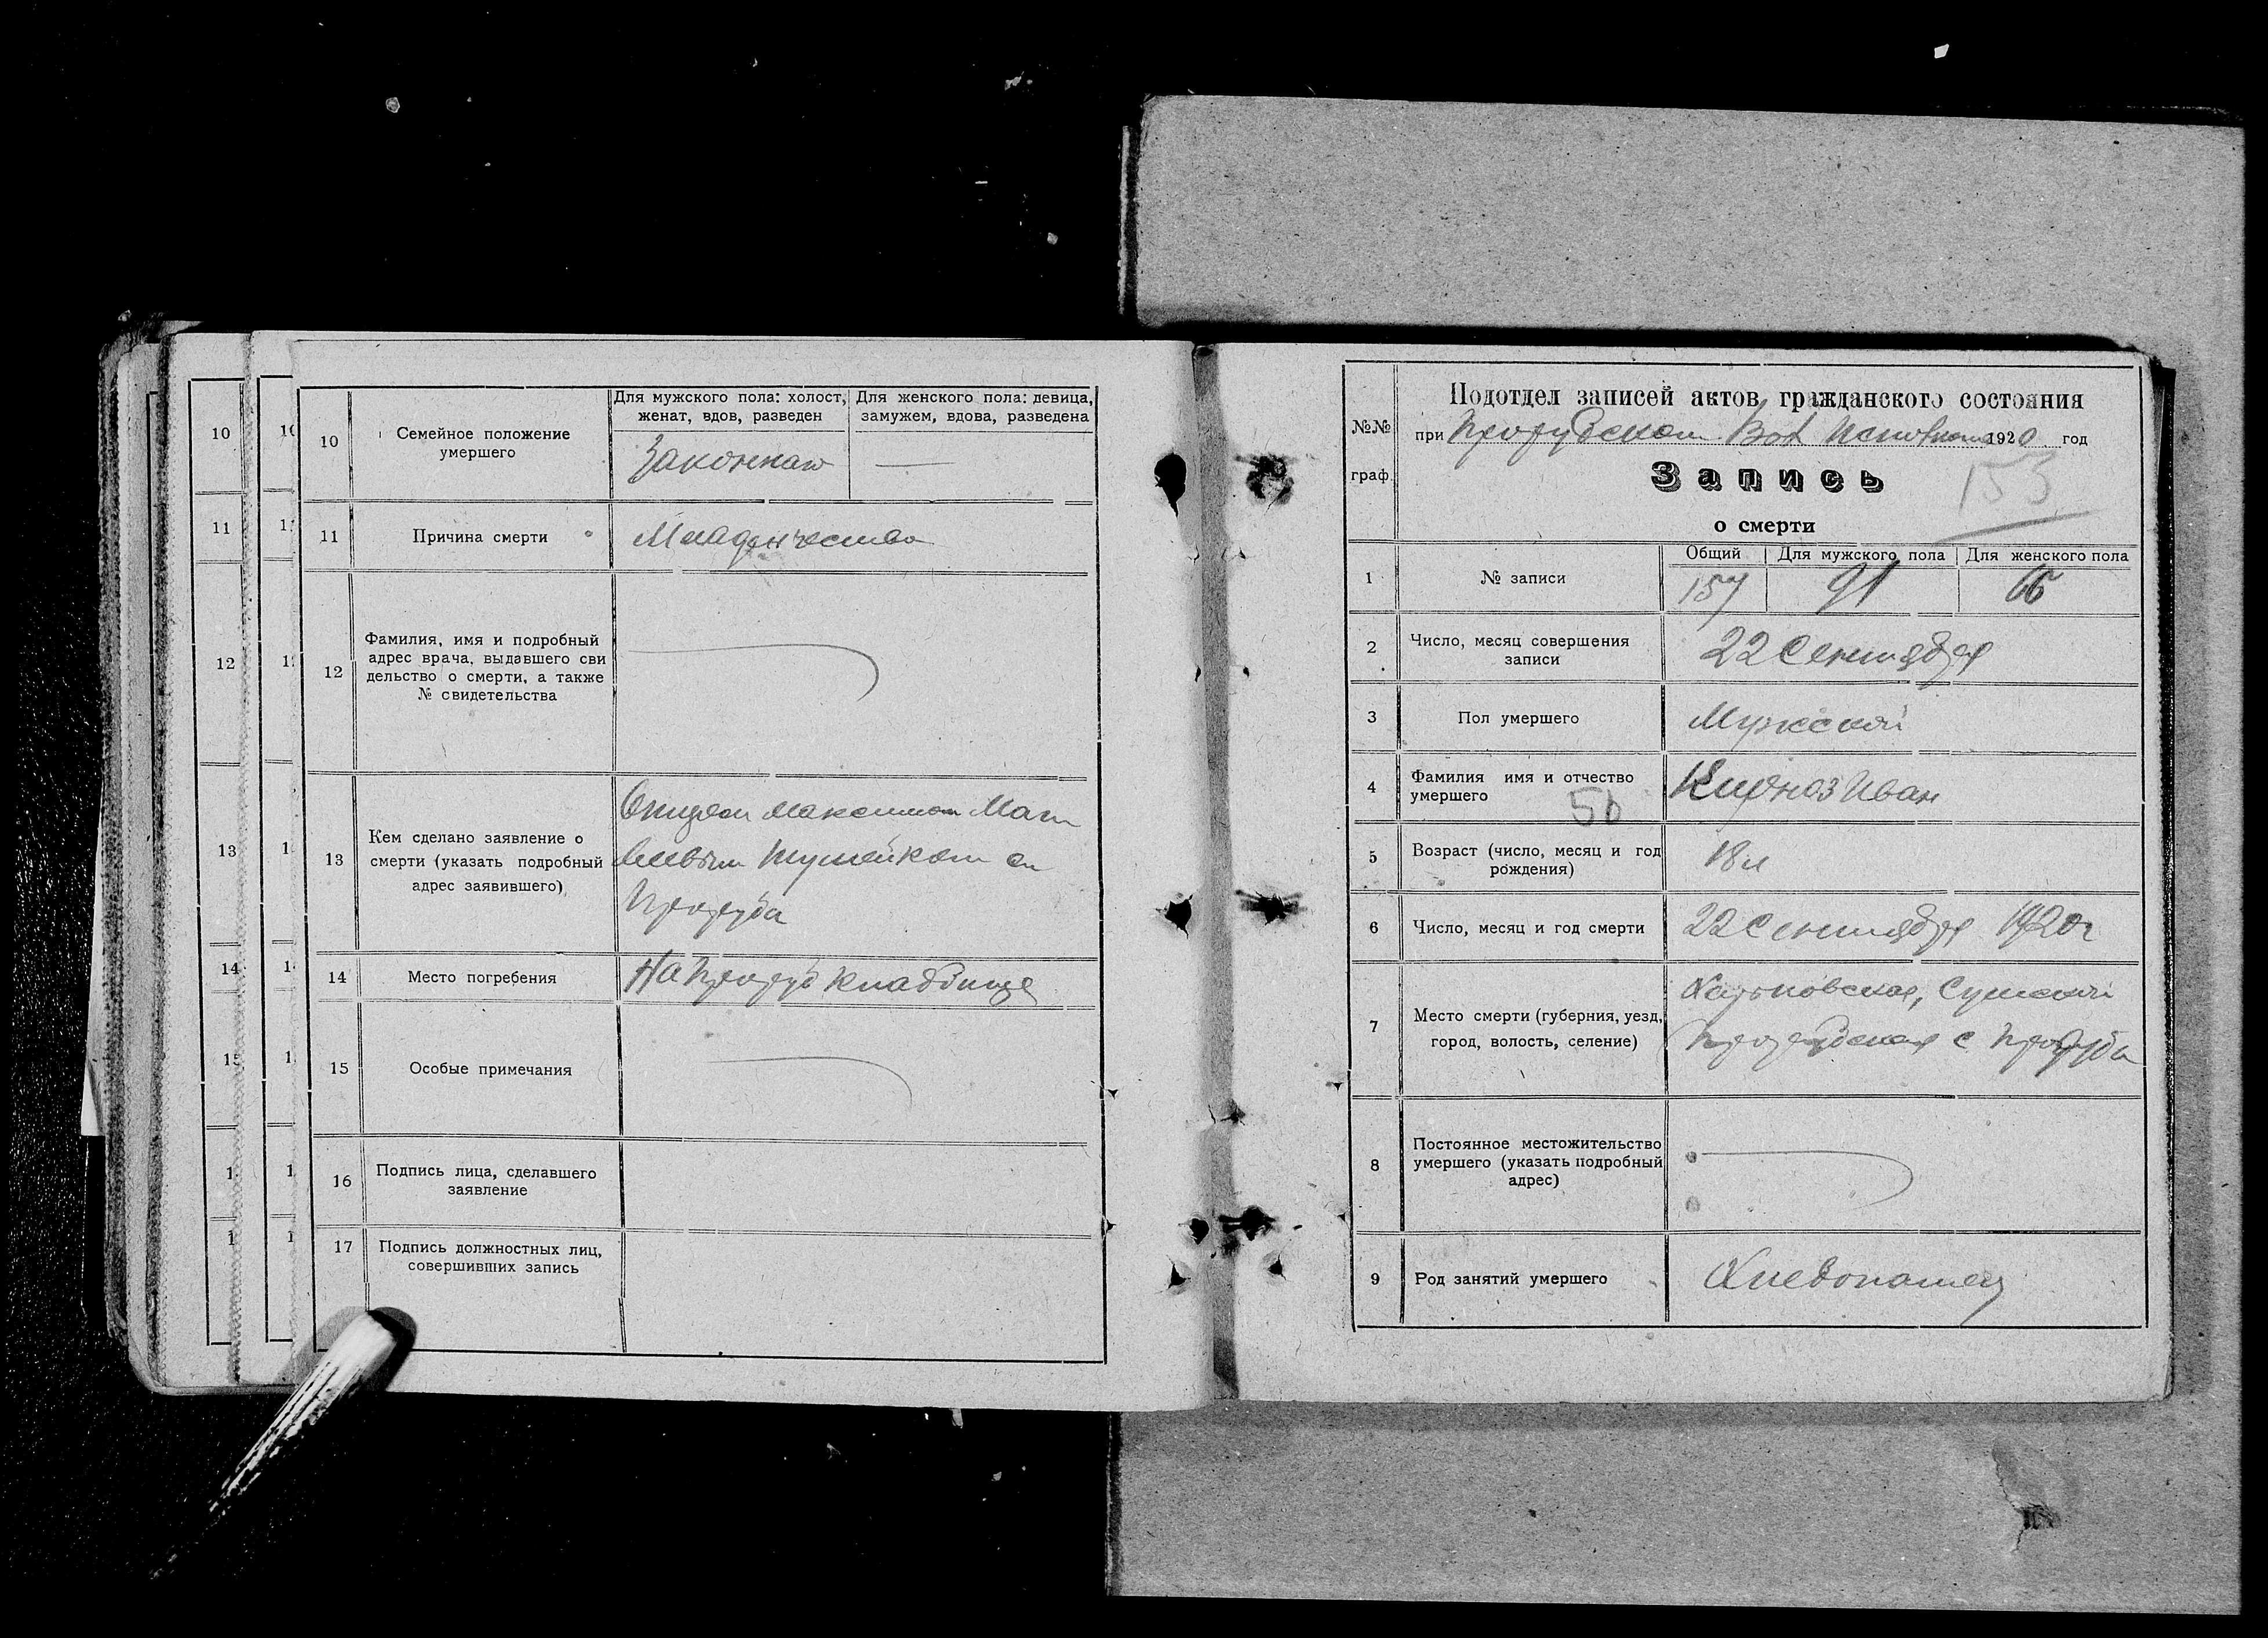 10
11
12
13
14
15
1
1
10
Семейное положение
умершего
Для мужского пола: холост,
женат, вдов, разведен
Для женского пола: девица,
замужем, вдова, разведена
Законнаго
11
Причина смерти
Младенчества
12
Фамилия, имя и подробный
адрес врача, выдавшего сви
дельство о смерти, а также
№ свидетельства
13
Кем сделано заявление о
смерти (указать подробный
адрес заявившего)
Отцем Максимом Мат
Шумейком
14
Место погребения
На кладбище
15
Особые примечания
16
Подпись лица, сделавшего
заявление
17
Подпись должностных лиц,
совершивших запись
№№
граф.
Подотдел записей актов гражданского состояния
при Вол 1920 год
Запись
153
о смерти
1
№ записи
Общий
Для мужского пола
Для женского пола
157
91
66
2
Число, месяц совершения
записи
22 Сентября
3
Пол умершего
Мужской
4
Фамилия имя и отчество
умершего
56
Иван
5
Возраст (число, месяц и год
рождения)
18
6
Число, месяц и год смерти
22 Сентября 1920г
7
Место смерти (губерния, уезд,
город, волость, селение)
Харьковская, Сумской
с
8
Постоянное местожительство
умершего (указать подробный
адрес)
9
Род занятий умершего
Хлебопашец